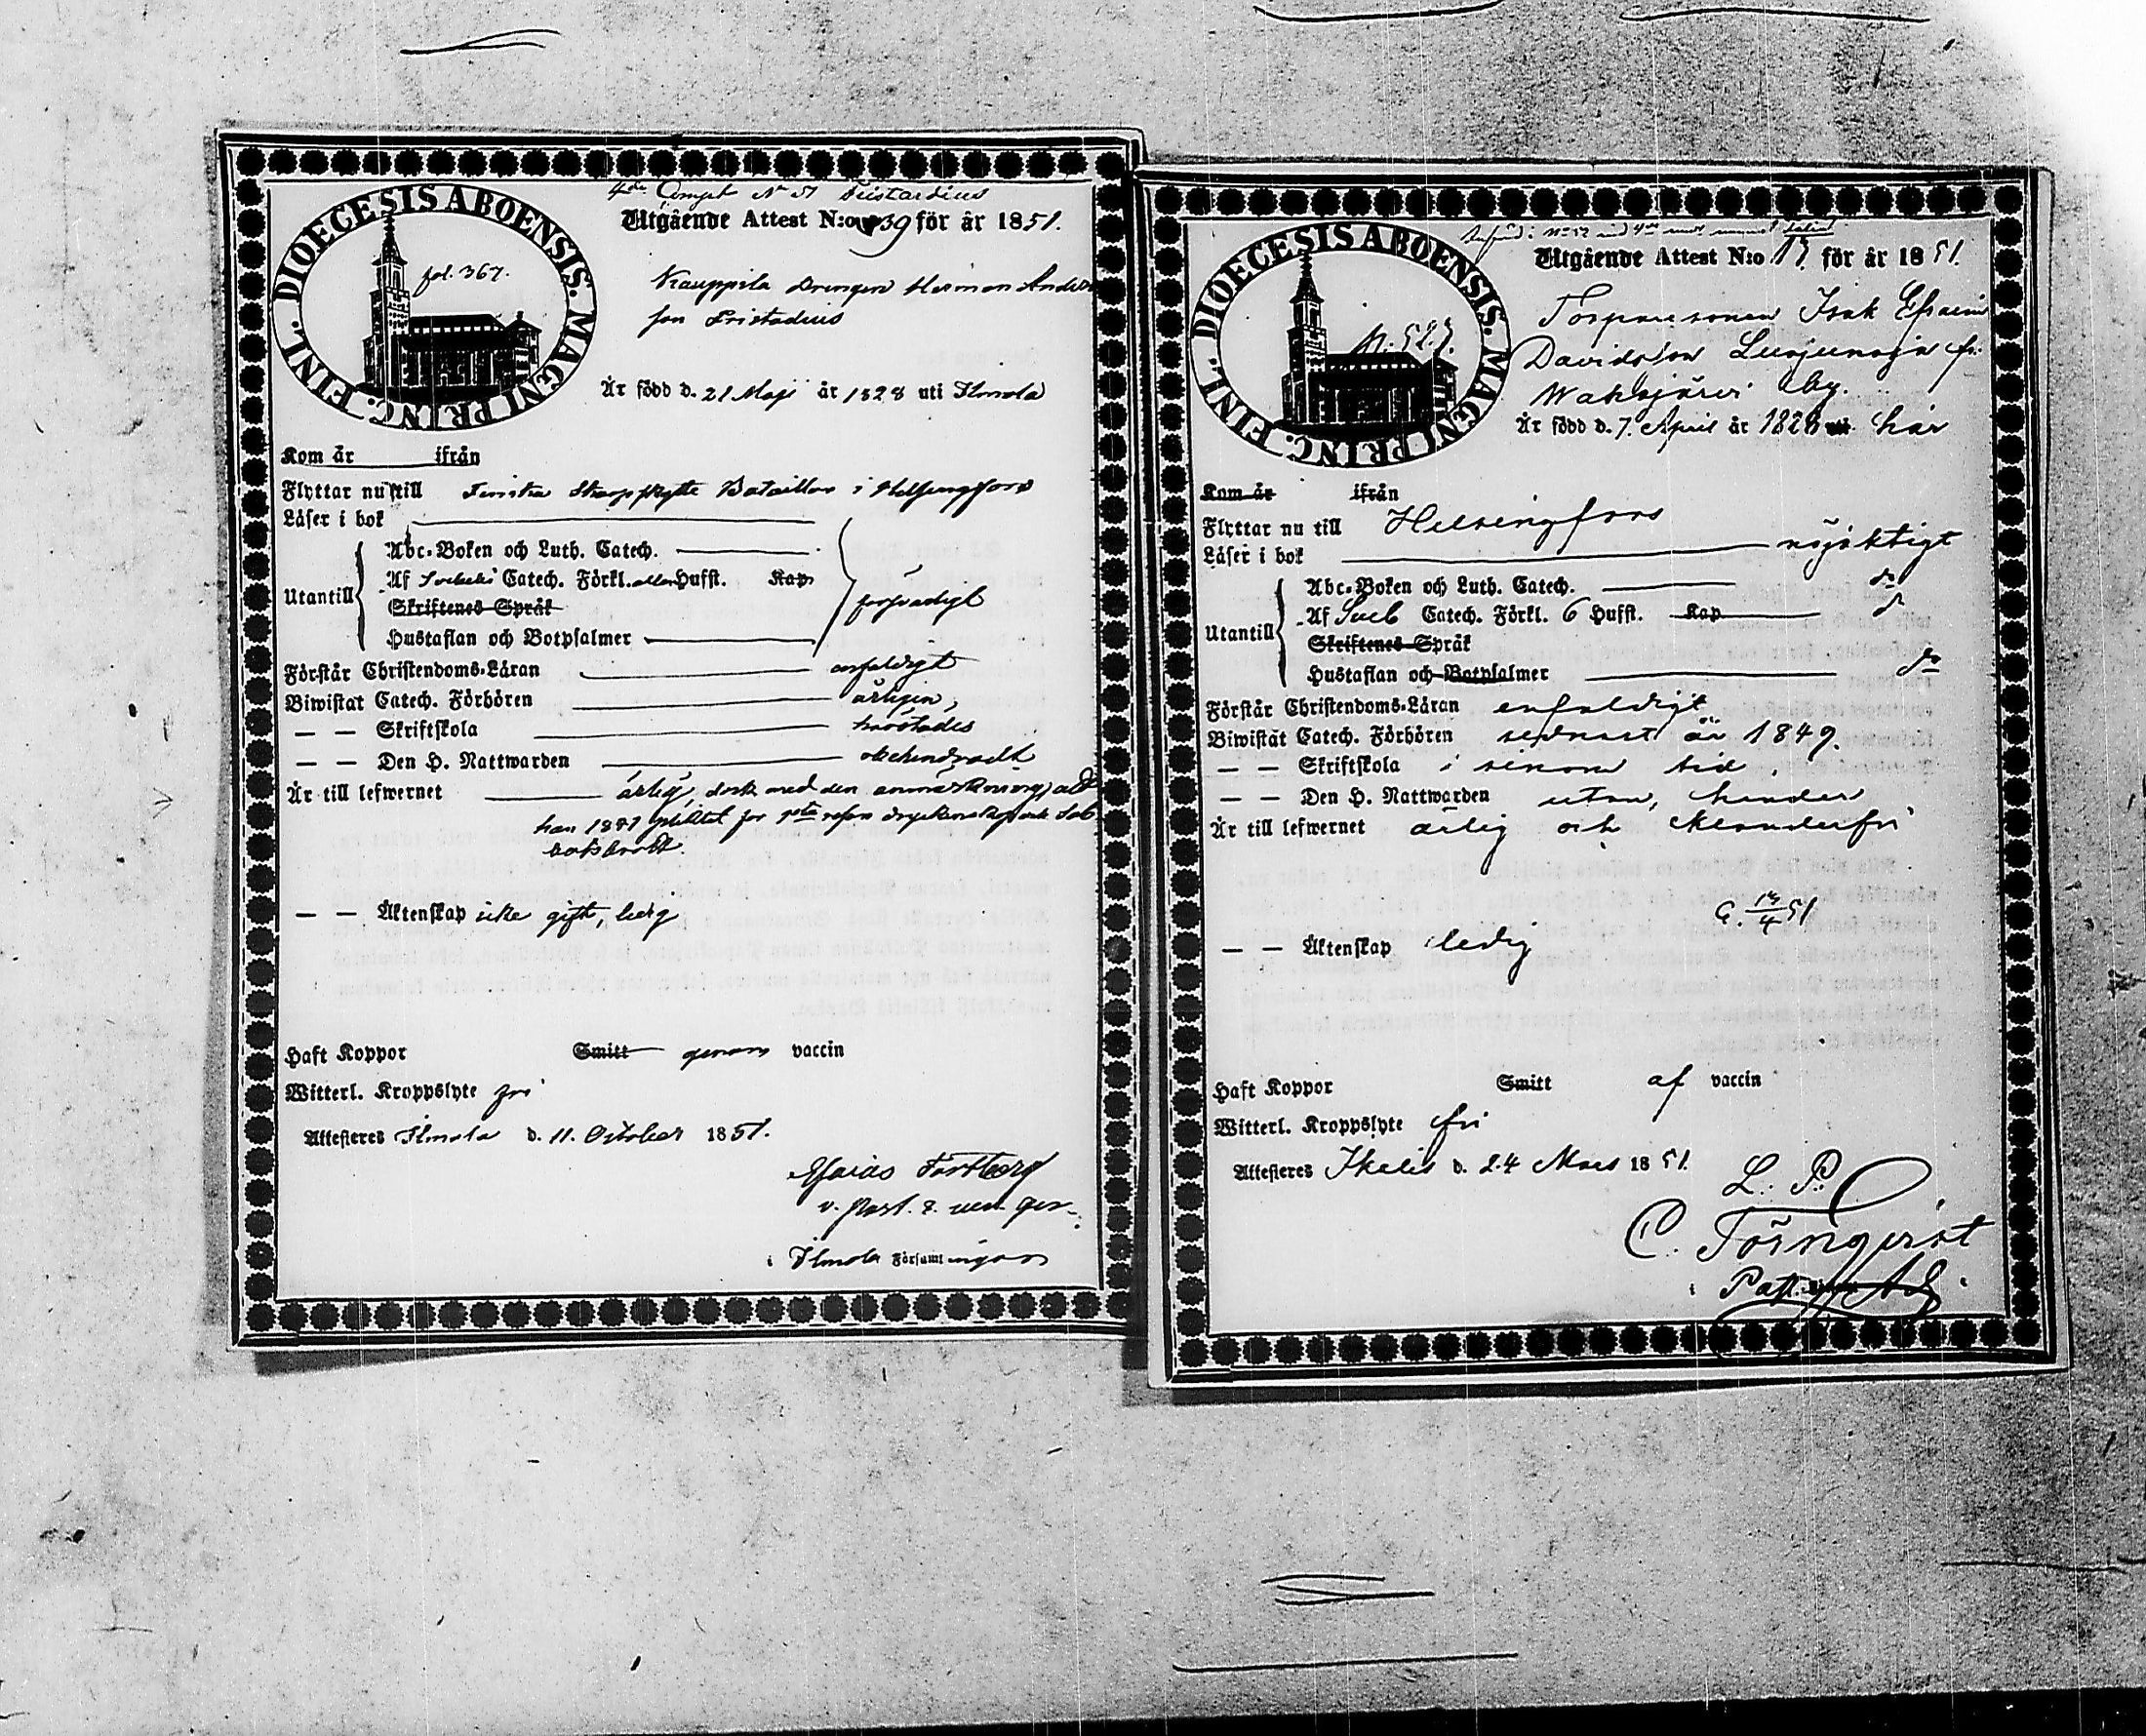 4de Compt No 51 Tristadius
Utgående Attest N:o 39 för år 1851.
DIOECESIS ABOENSIS. MAGNI PRINC. FINL.
fol. 367.
Kauppila Drengen Herman Anders
son Tristadius
Är född d. 21 Maji år 1828 uti Ilmola
Kom år ifrån
Flyttar nu till Finska Skarpskytte Bataillon i Helsingfors
Läser i bok
Abc-Boken och Luth. Catech.
Utantill
Af Svebeli Catech. Förkl. Hufst. Kap
Skriftenes Språk
försvarligt
Hustaflan och Botpsalmer
Förstår Christendoms-Läran enfaldigt
Biwistat Catech. Förhören årligen,
— — Skriftskola
— — Den H. Nattwarden obehindradt
Är till lefwernet ärlig, dock med den anmärkning, att
han 18 pliktat för 1sta resan dryckenskap och Sab
batsbrott.
— — Äktenskap icke gift, ledig
Haft Koppor Smitt genom vaccin
Witterl. Kroppslyte fri
Attesteres Ilmola d. 11. October 1851.
Esaias Fortberg
v. past.
i Ilmola Församlingar
Utgående Attest N:o 13. för år 1851.
DIOECESIS ABOENSIS. MAGNI PRINC. FINL.
p. 523.
Torparesonen Isak Efraim
Davidsson
Wahojärvi by.
Är född d. 7. April år 1828 uti här
Kom år ifrån
Flyttar nu till Helsingfors
Läser i bok nöjaktigt
Abc-Boken och Luth. Catech. do
Utantill
Af Sveb Catech. Förkl. 6 Hufst. Kap do
Skriftenes Språk
Hustaflan och Botpsalmer do
Förstår Christendoms-Läran enfaldigt
Biwistat Catech. Förhören sednast år 1849.
— — Skriftskola i sinom tid.
— — Den H. Nattwarden utan hinder
Är till lefwernet ärlig och klanderfri
13/4 51
— — Äktenskap ledig
Haft Koppor Smitt af vaccin
Witterl. Kroppslyte fri
Attesteres Ikalis d. 24 Mars 1851.
L. P.
C. Törnqvist
Past. Adj.